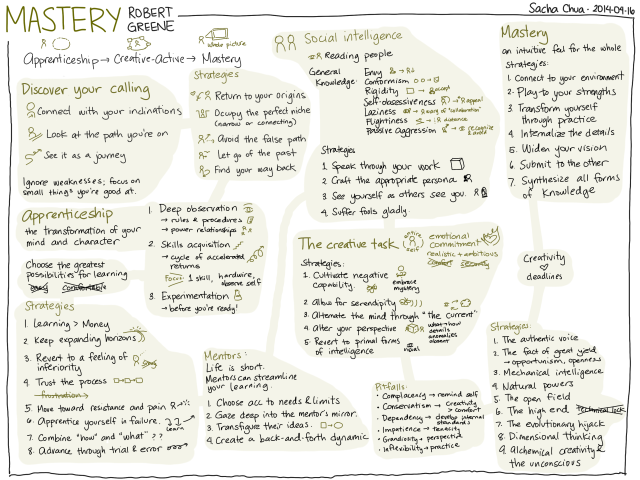 MASTERY ROBERT GREENE
Sacha Chua · 2014-09-16
whole picture
Apprenticeship → Creative-Active → Mastery
Discover your calling
Connect with your inclinations
Look at the path you're on
See it as a journey
Ignore weaknesses; focus on
small things you're good at.
Strategies
Return to your origins
Occupy the perfect niche
(narrow or connecting)
Avoid the false path
Let go of the past
Find your way back
Social intelligence
Reading people
General Knowledge:
Envy
Conformism
Rigidity → accept
Self-obsessiveness → appeal
Laziness → wary of "collaboration"
Flightiness → distance
Passive Aggression → recognize & avoid
Strategies
1. Speak through your work
2. Craft the appropriate persona
3. See yourself as others see you.
4. Suffer fools gladly.
Mastery
an intuitive feel for the whole
Strategies:
1. Connect to your environment
2. Play to your strengths
3. Transform yourself
through practice
4. Internalize the details
5. Widen your vision
6. Submit to the other
7. Synthesize all forms
of knowledge
Apprenticeship
the transformation of your
mind and character
Choose the greatest
possibilities for learning
easy comfortable
Strategies
1. Learning > Money
2. Keep expanding horizons
3. Revert to a feeling of
inferiority
4. Trust the process
frustration
5. Move toward resistance and pain
6. Apprentice yourself in failure.
learn
7. Combine "how" and "what"
8. Advance through trial & error
1. Deep observation
→ rules & procedures
→ power relationships
2. Skills acquisition
→ cycle of accelerated
returns
Focus: 1 skill, hardwire,
observe self
3. Experimentation
→ before you're ready!
The creative task
emotional
commitment
realistic + ambitious
comfort security
Strategies:
1. Cultivate negative
capability.
embrace
mystery
2. Allow for serendipity
3. Alternate the mind through "the current"
4. Alter your perspective
what → how
details
anomalies
absent
5. Revert to primal forms
of intelligence
visual
Creativity
deadlines
Mentors:
Life is short.
Mentors can streamline
your learning.
1. Choose acc to needs & limits
2. Gaze deep into the mentor's mirror.
3. Transfigure their ideas.
4. Create a back-and-forth dynamic
Pitfalls:
• Complacency → remind self
• Conservatism → Creativity
> comfort
• Dependency → develop internal
standards
• Impatience → tenacity
• Grandiosity → perspective
• Inflexibility → practice
Strategies:
1. The authentic voice
2. The fact of great yield
→ opportunism, openness
3. Mechanical intelligence
4. Natural powers
5. The open field
6. The high end technical lock
7. The evolutionary hijack
8. Dimensional thinking
9. Alchemical creativity &
the unconscious